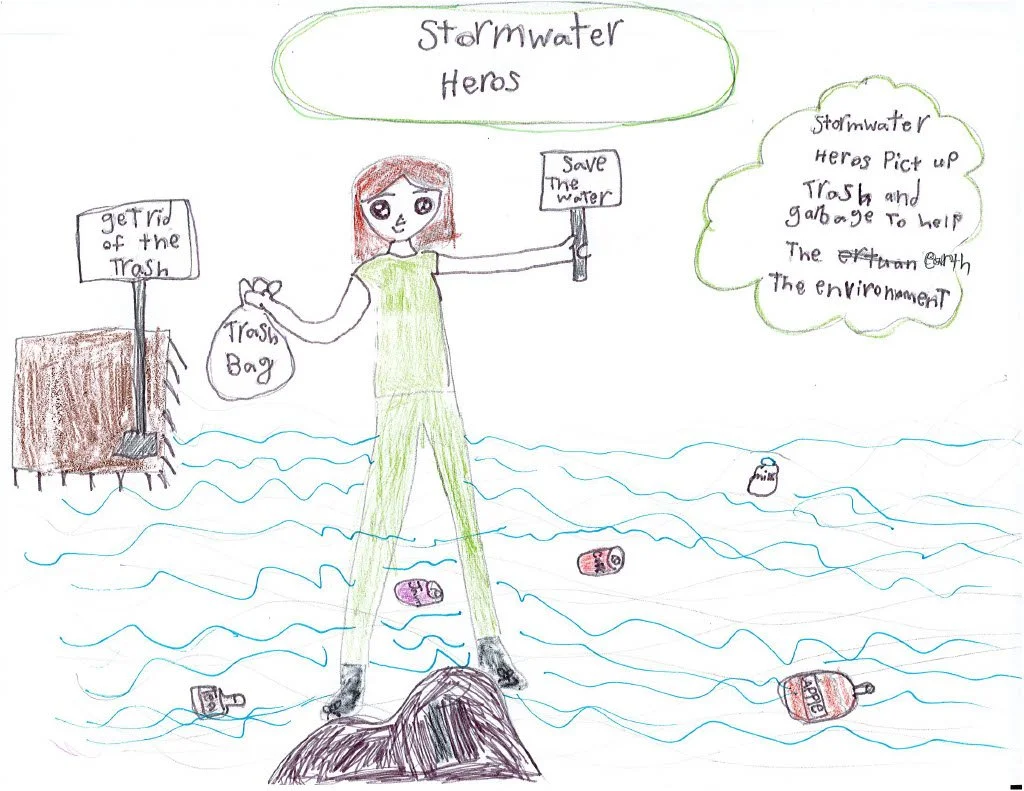 Stormwater
Heros
Stormwater
Heros Pict up
Trash and
garbage To help
The earth
The environment
Save
The
water
get rid
of the
Trash
Trash
Bag
milk
APPLE